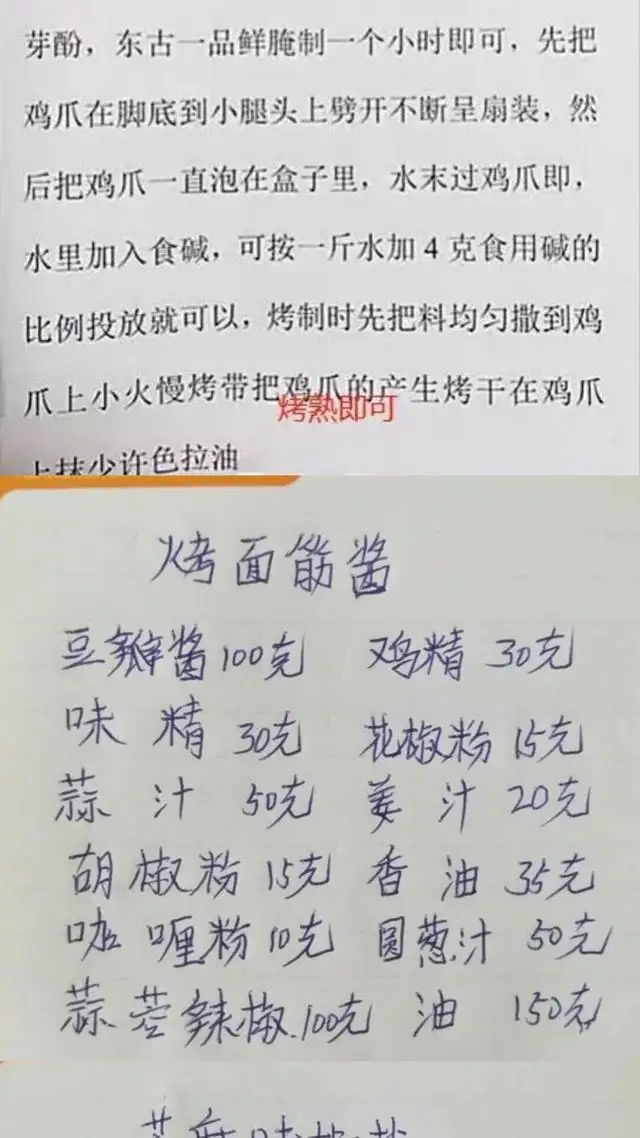 芽酚，东古一品鲜腌制一个小时即可，先把
鸡爪在脚底到小腿头上劈开不断呈扇装，然
后把鸡爪一直泡在盒子里，水末过鸡爪即，
水里加入食碱，可按一斤水加 4 克食用碱的
比例投放就可以，烤制时先把料均匀撒到鸡
爪上小火慢烤带把鸡爪的产生烤干在鸡爪
烤熟即可
上抹少许色拉油
烤面筋酱
豆瓣酱100克 鸡精 30克
味精 30克 花椒粉 15克
蒜汁 50克 姜汁 20克
胡椒粉 15克 香油 35克
咖喱粉 10克 圆葱汁 50克
蒜茬辣椒.100克 油 150克